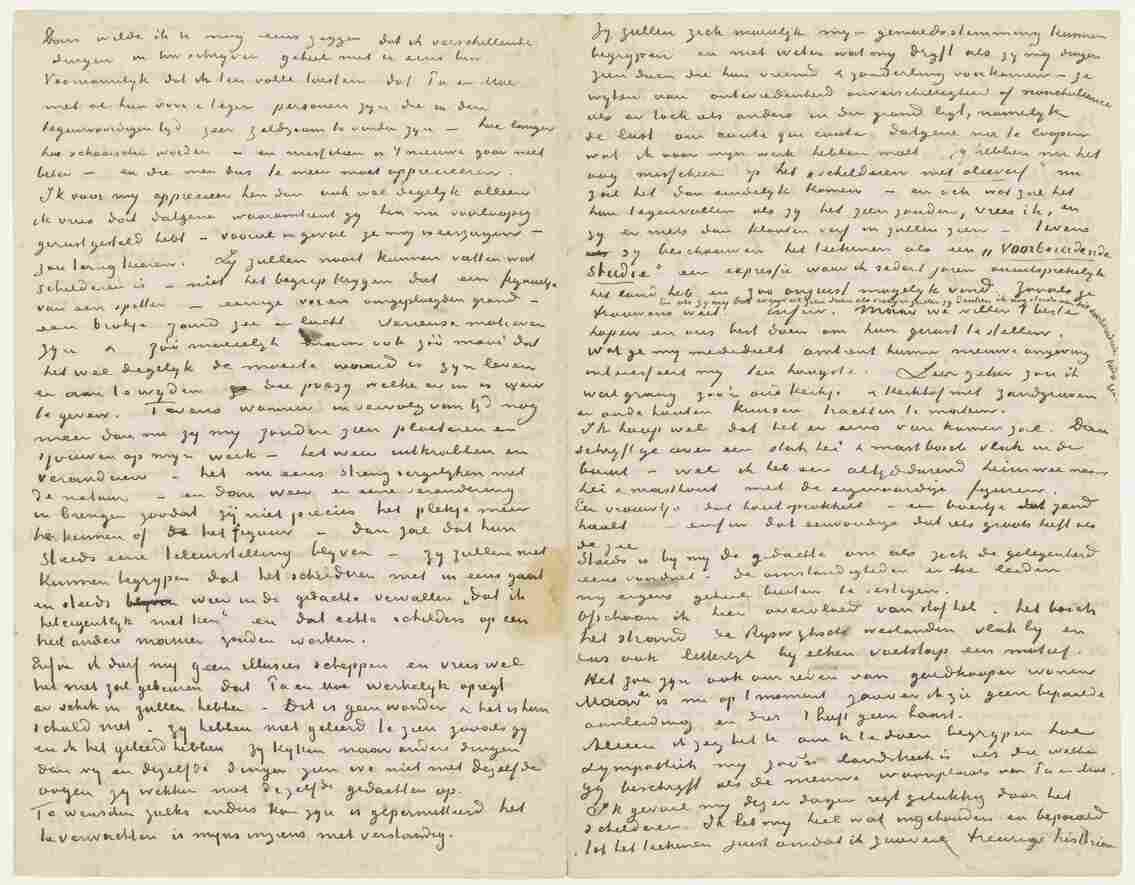 Dan wilde ik U nog eens zeggen dat ik verschillende
dingen in Uw schrijven geheel met U eens ben
Voornamelijk dat ik ten volle toestem dat Pa en Moe
met al hun voor & tegen personen zijn die in den
tegenwoordigen tijd zeer zeldzaam te vinden zijn – hoe langer
hoe schaarscher worden – en misschien is 't nieuwe gaar niet
beter – en die men dus te meer moet apprecieeren.
Ik voor mij apprecieer hen dan ook wel degelijk alleen
ik vrees dat datgene waaromtrent gij hen nu voorloopig
gerustgesteld hebt – vooral ingeval ze mij weerzagen –
zou terug keeren. Zij zullen nooit kunnen vatten wat
schilderen is – niet het begrip krijgen dat een figuurtje
van een spitter – eenige voren omgeploegden grond –
een brokje zand zee en lucht serieuse motieven
zijn & zóó moeielijk maar ook zóó mooi dat
het wel degelijk de moeite waard is zijn leven
er aan te wijden de poezy welke er in is weer
te geven. Tevens wanneer in vervolg van tijd nog
meer dan nu zij mij zouden zien ploeteren en
sjouwen op mijn werk – het weer uitkrabben en
veranderen – het nu eens streng vergelijken met
de natuur – en dan weer er eene verandering
in brengen zoodat zij niet precies het plekje meer
herkennen of het figuur – dan zal dat hun
steeds eene teleurstelling blijven – zij zullen niet
kunnen begrijpen dat het schilderen niet in eens gaat
en steeds weer in de gedachte vervallen „dat ik
het eigentlijk niet ken” en dat echte schilders op een
heel andere manier zouden werken.
Enfin ik durf mij geen illusies scheppen en vrees wel
het niet zal gebeuren dat Pa en Moe werkelijk opregt
er schik in zullen hebben – Dit is geen wonder & het is hun
schuld niet. zij hebben niet geleerd te zien zooals gij
en ik het geleerd hebben zij kijken naar andere dingen
dan wij en dezelfde dingen zien we niet met dezelfde
oogen zij wekken niet dezelfde gedachten op.
Te wenschen zulks anders kon zijn is gepermitteerd het
te verwachten is mijns inziens niet verstandig.
Zij zullen zich moeielijk mijn gemoedsstemming kunnen
begrijpen en niet weten wat mij drijft als zij mij dingen
zien doen die hun vreemd & zonderling voorkomen – ze
wijten aan ontevredenheid onverschilligheid of nonchalance
als er toch iets anders in den grond ligt, namelijk
de lust om coute que coute datgene na te loopen
wat ik voor mijn werk hebben moet. zij hebben nu het
oog misschien op het schilderen met olieverf nu
zal het dan eindelijk komen – en och wat zal het
hun tegenvallen als zij het zien zouden, vrees ik, en
zij er niets dan klonters verf in zullen zien – tevens
zij beschouwen het teekenen als een „voorbereidende
studie” een expressie waar ik sedert jaren onuitsprekelijk
het land heb en zoo onjuist mogelijk vond zooals ge
trouwens weet enfin. Maar we willen 't beste
hopen en ons best doen om hun gerust te stellen.
Wat ge mij mededeelt omtrent hunne nieuwe omgeving
interesseert mij ten hoogste. Zeer zeker zou ik
wat graag zoo'n oud kerkje & kerkhof met zandgraven
en oude houten kruisen trachten te maken.
Ik hoop wel dat het er eens van komen zal. Dan
schrijft ge over een stuk hei & mastbosch vlak in de
buurt – wel ik heb een altijddurend heimwee naar
hei & masthout met de eigenaardige figuren.
Een vrouwtje dat hout sprokkelt – een boertje dat zand
haalt – enfin dat eenvoudige dat iets groots heeft als
de zee
Steeds is bij mij de gedachte om als zich de gelegenheid
eens voordeet de omstandigheden er toe leiden
mij ergens geheel buiten te vestigen.
Ofschoon ik hier overvloed van stof heb. het bosch
het strand de Rijswijksche weilanden vlak bij en
dus ook letterlijk bij elken voetstap een motief.
Het zou zijn ook om reden van goedkooper wonen
Maar er is nu op 't moment zoover ik zie geen bepaalde
aanleiding en dus 't heeft geen haast.
Alleen ik zeg het U om U te doen begrijpen hoe
sympathiek mij zoo'n landstreek is als die welke
gij beschrijft als de nieuwe woonplaats van Pa en Moe.
Ik gevoel mij dezer dagen regt gelukkig door het
schilderen. Ik heb mij heel wat ingehouden en bepaald
tot het teekenen juist omdat ik zooveel treurige histories